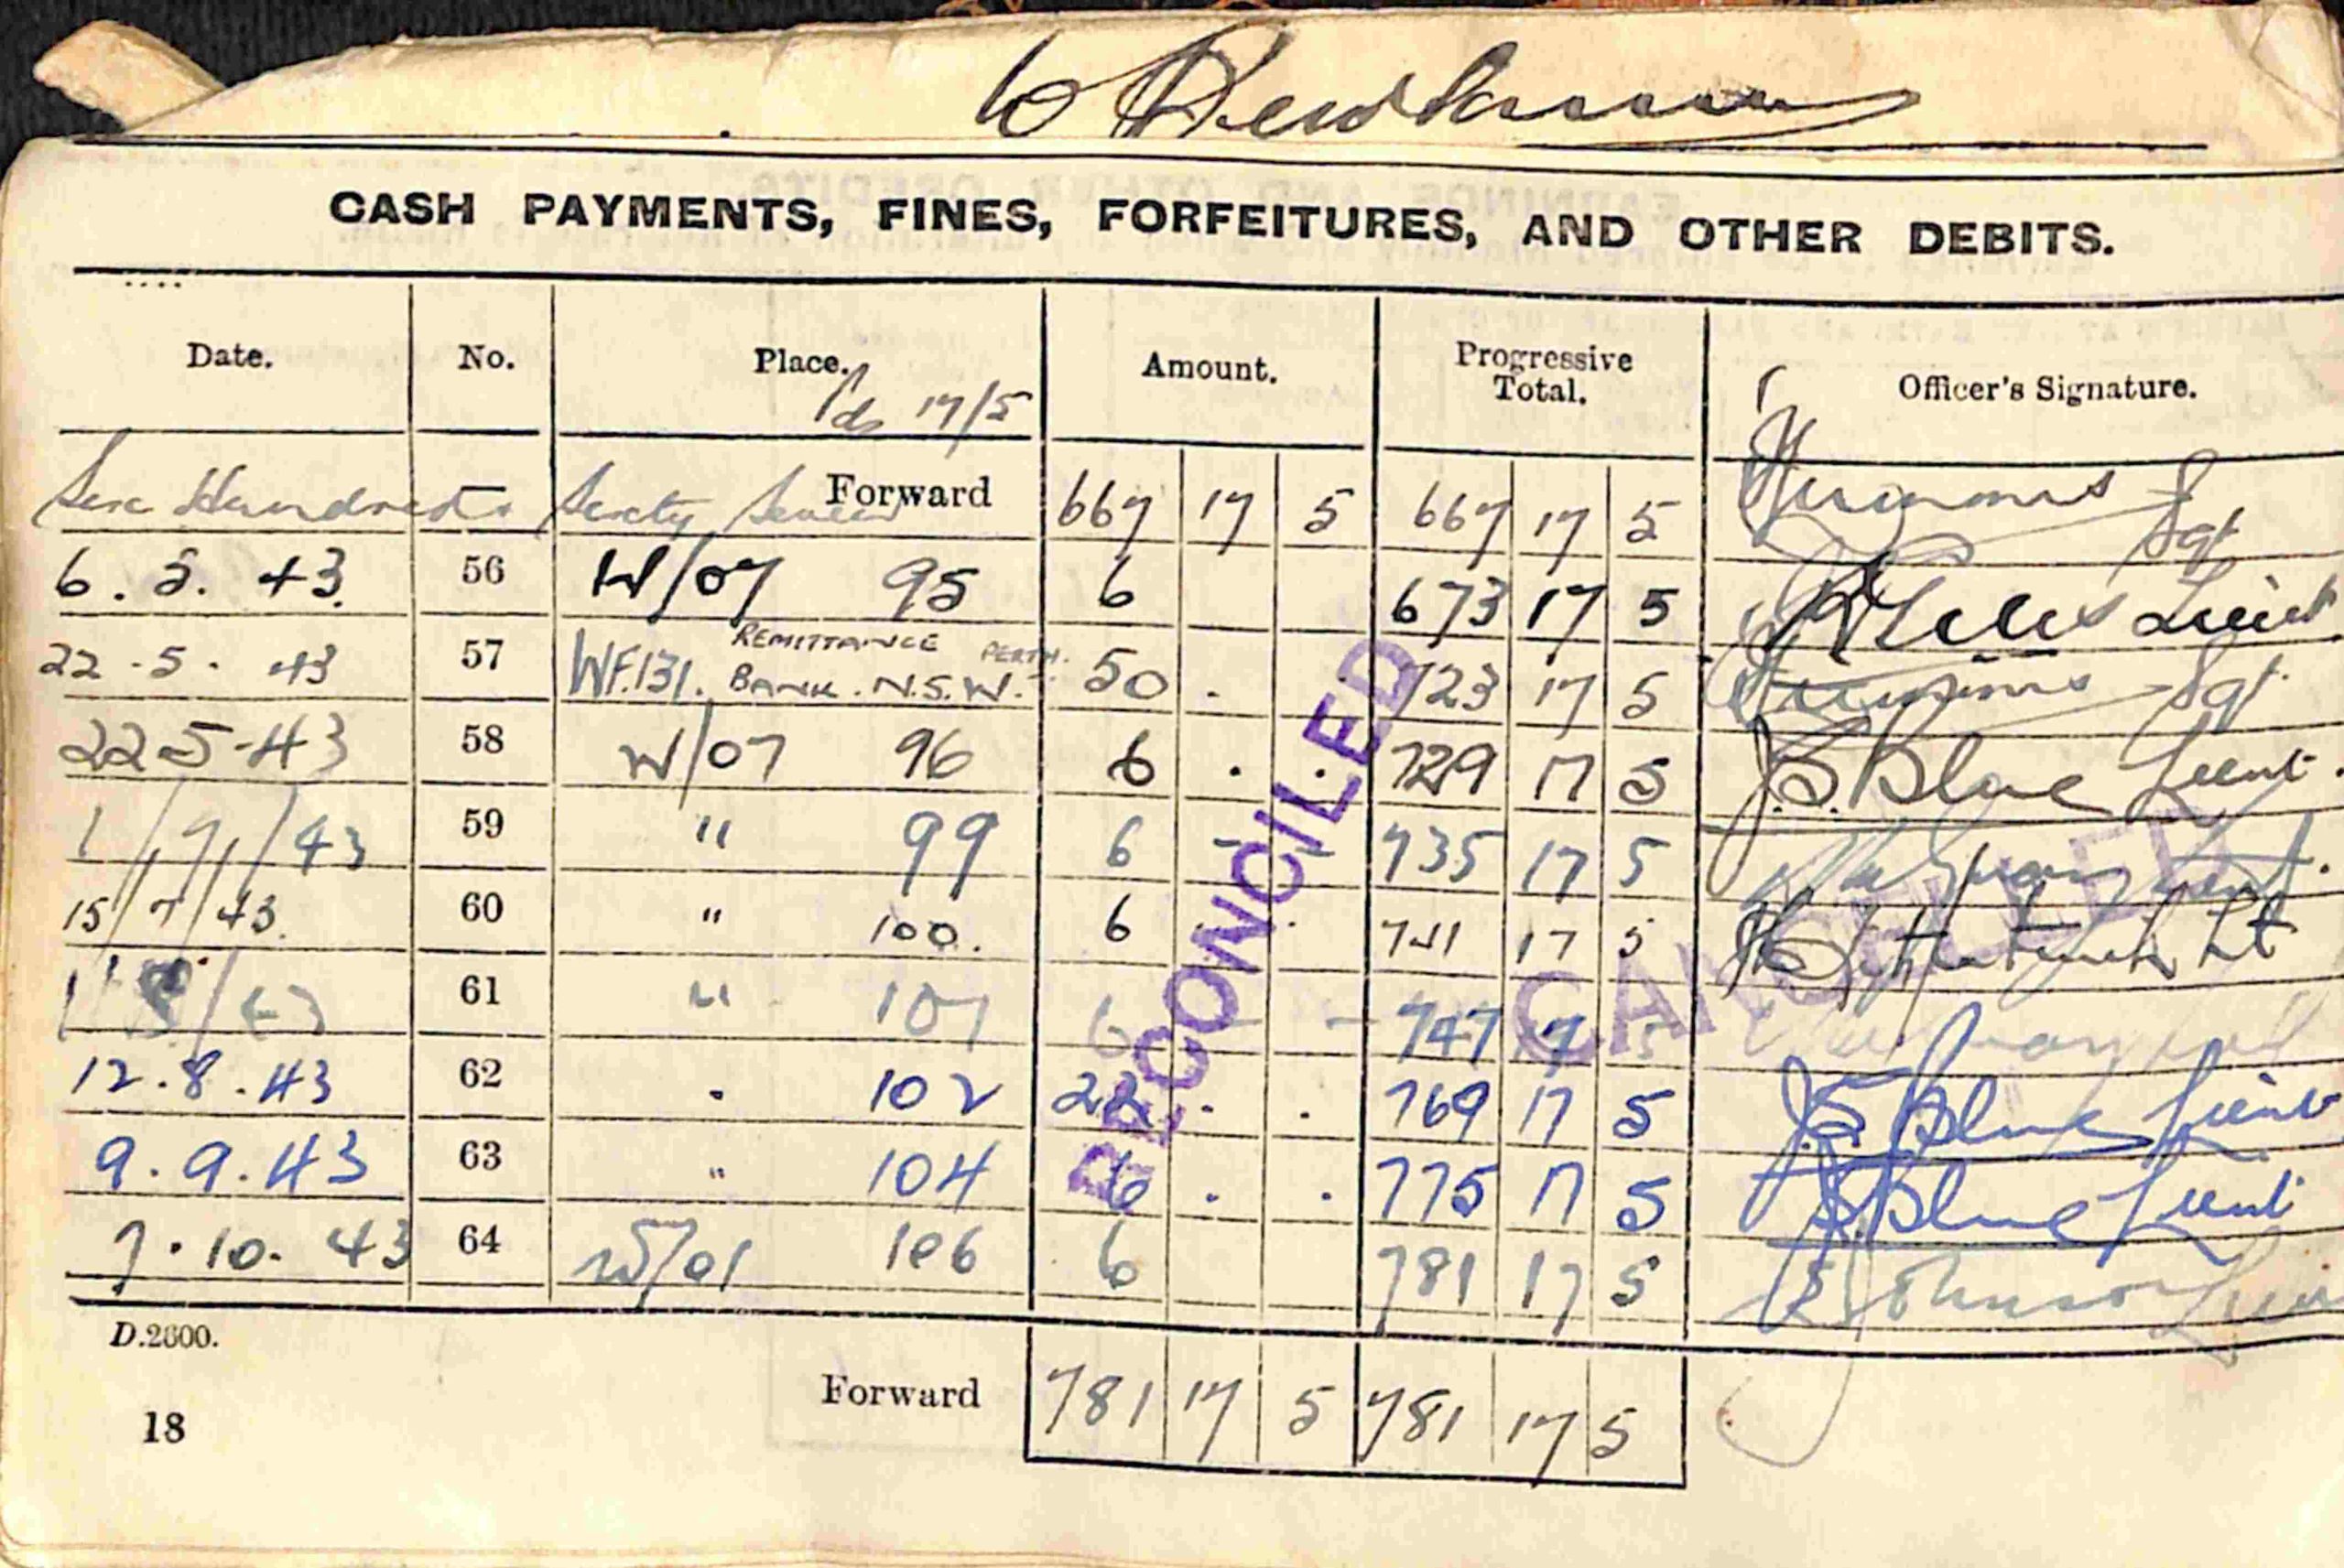 CASH PAYMENTS, FINES, FORFEITURES, AND OTHER DEBITS.
Date. No. Place. Amount. Progressive Total. Officer's Signature.
17/5
Six Hundred Sixty Seven Forward 667 17 5 667 17 5 Sgt
6.5.43. 56 W/07 95 6 673 17 5 Lieut
22.5.43 57 WF.131. REMITTANCE PERTH. BANK. N.S.W. 50 . . 723 17 5 Sgt.
22-5-43 58 W/07 96 6 . . 729 17 5 J.S. Blue Lieut.
1/7/43 59 " 99 6 - - 735 17 5
15/7/43. 60 " 100. 6 . . 741 17 5 Lt
61 " 101 6 - - 747 17 5
12.8.43 62 . 102 22 . . 769 17 5 J.S. Blue Lieut
9.9.43 63 " 104 6 . . 775 17 5 J.S. Blue Lieut
7.10.43 64 106 6 781 17 5 Johnson
RECONCILED
CANCELLED
D.2600.
Forward 781 17 5 781 17 5
18